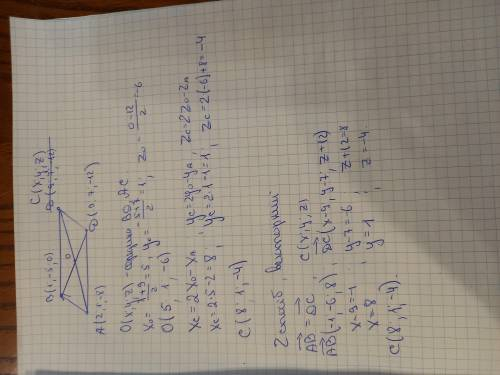 B(1,-5,0)
C(x,y,z)
A(2,1,-8)
O
D(9,7,-12)
O(x,y,z) - середина BD, AC
x₀ = (1+9)/2 = 5; y₀ = (-5+7)/2 = 1; z₀ = (0-12)/2 = -6
O(5, 1, -6)
xc = 2x₀ - xA ; yc = 2y₀ - yA ; zc = 2z₀ - zA
xc = 2·5-2 = 8 ; yc = 2·1-1 = 1 ; zc = 2(-6)+8 = -4
C(8, 1, -4)
2 спосіб векторний
AB = DC, C(x; y; z)
AB(-1, -6, 8) DC(x-9, y-7; z+12)
x-9=-1 ; y-7=-6 ; z+12=8
x=8 ; y=1 ; z=-4
C(8, 1, -4).